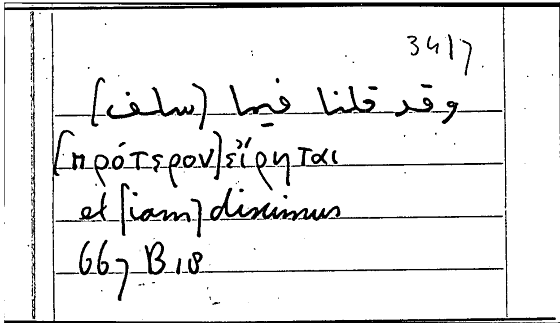 3417
وقد قلنا فيما [سلف]
[πρότερον] εἴρηται
et [iam] diximus
667 B 18